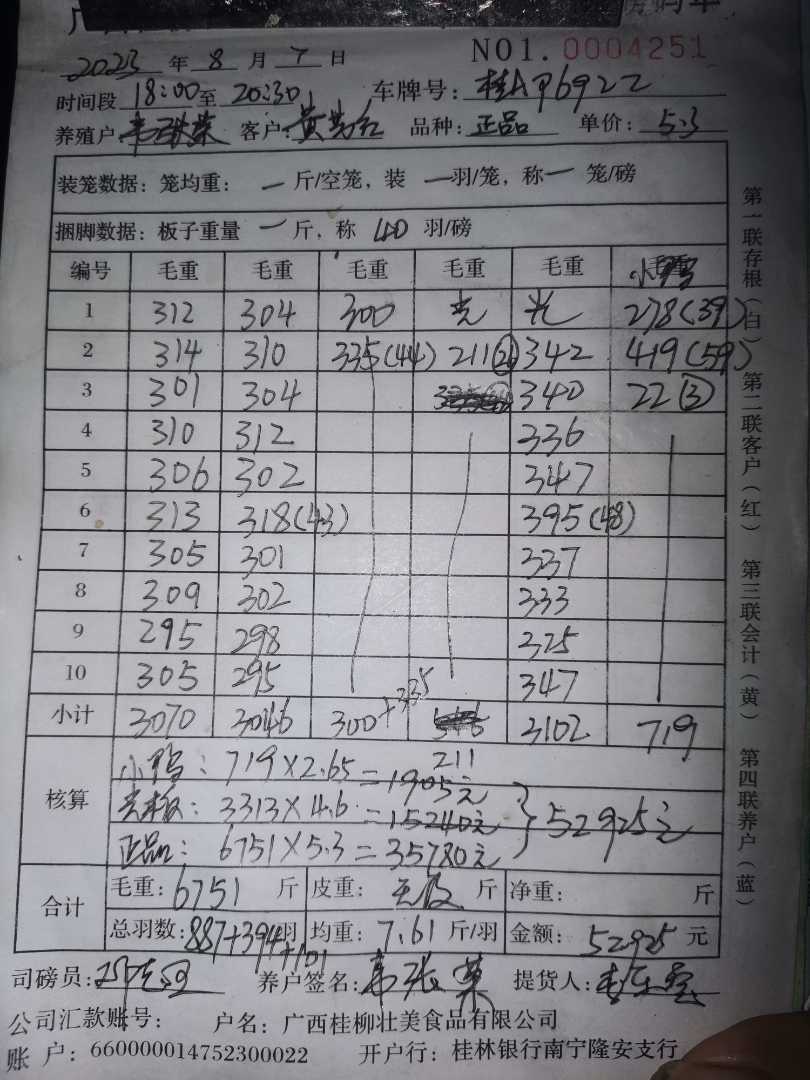 NO1. 0004251
2023 年 8 月 7 日
时间段 18:00 至 20:30 车牌号: 桂AP6922
养殖户: 客户: 品种: 正品 单价: 5.3
装笼数据: 笼均重: — 斤/空笼, 装 — 羽/笼, 称 — 笼/磅
捆脚数据: 板子重量 — 斤, 称 40 羽/磅
编号 毛重 毛重 毛重 毛重 毛重 小鸭
1 312 304 300 278(39)
2 314 310 335(44) 211 342 419(59)
3 301 304 340 22(3)
4 310 312 336
5 306 302 347
6 313 318(43) 395(48)
7 305 301 337
8 309 302 333
9 295 298 325
10 305 295 347
小计 3070 3046 300+335 211 3102 719
核算
小鸭: 719×2.65=1905元
3313×4.6=15240元
正品: 6751×5.3=35780元
}52925元
合计
毛重: 6751 斤 皮重: 斤 净重: 斤
总羽数: 887+394+101 羽 均重: 7.61 斤/羽 金额: 52925 元
司磅员: 养户签名: 提货人:
公司汇款账号: 户名: 广西桂柳壮美食品有限公司
账 户: 660000014752300022 开户行: 桂林银行南宁隆安支行
第一联存根(白) 第二联客户(红) 第三联会计(黄) 第四联养户(蓝)